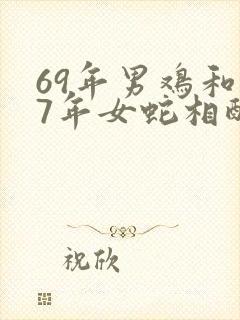 69年男鸡和
7年女蛇相配
祝欣